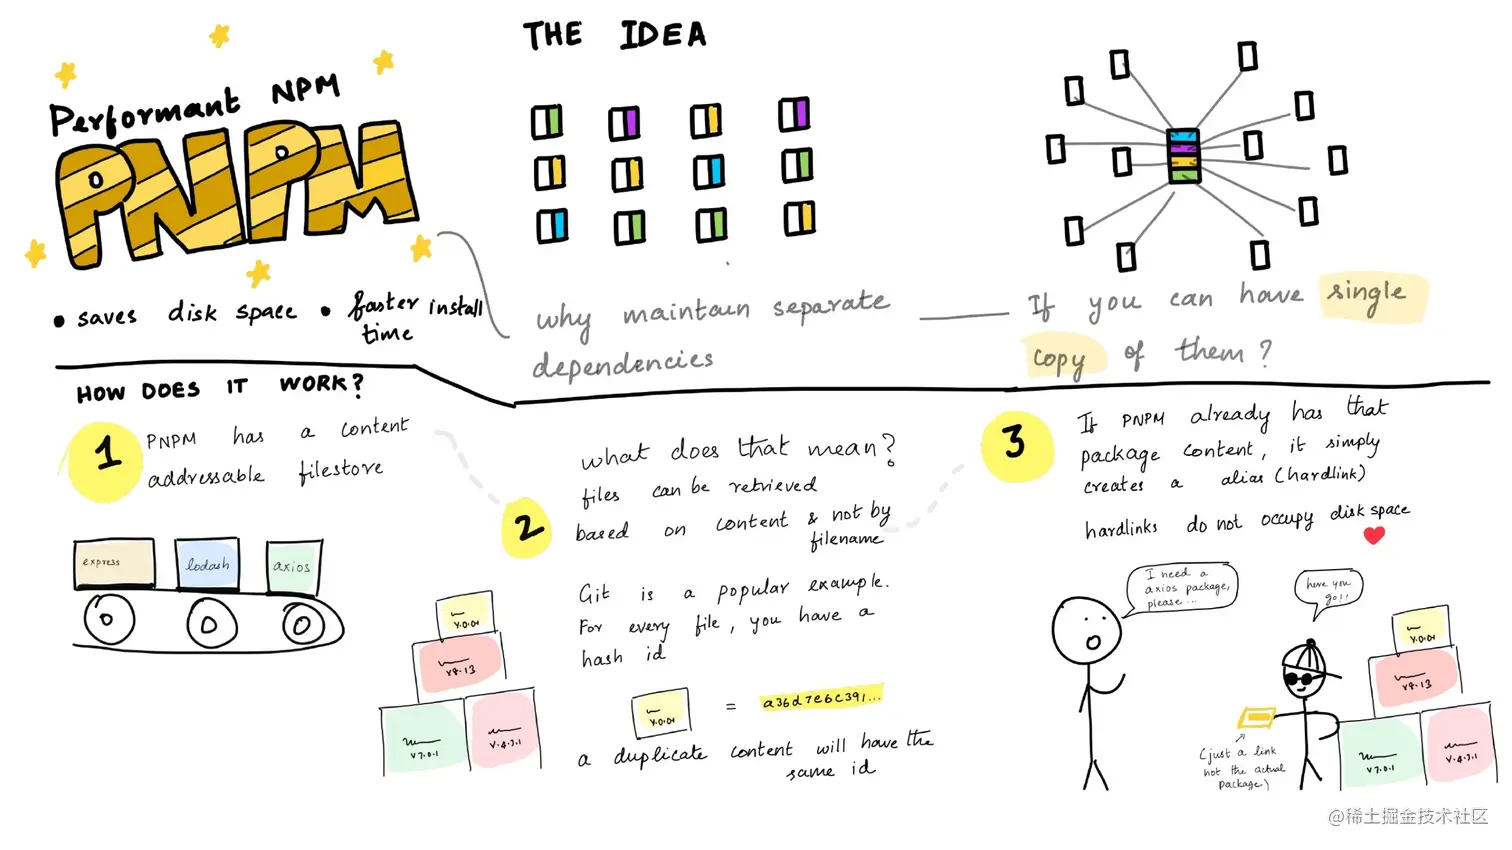 Performant NPM
PNPM
• saves disk space • faster install
time
THE IDEA
why maintain separate
dependencies
If you can have single
copy of them?
HOW DOES IT WORK?
1
PNPM has a content
addressable filestore
express
lodash
axios
2
what does that mean?
files can be retrieved
based on content & not by
filename
Git is a popular example.
For every file, you have a
hash id
v.0.01
= a36d7e6c391...
a duplicate content will have the
same id
v.0.01
v8.13
v7.0.1
v.4.7.1
3
If PNPM already has that
package content, it simply
creates a alias (hardlink)
hardlinks do not occupy disk space
I need a
axios package,
please...
here you
go!!
(just a link
not the actual
package)
v.0.01
v8.13
v7.0.1
v.4.7.1
@稀土掘金技术社区